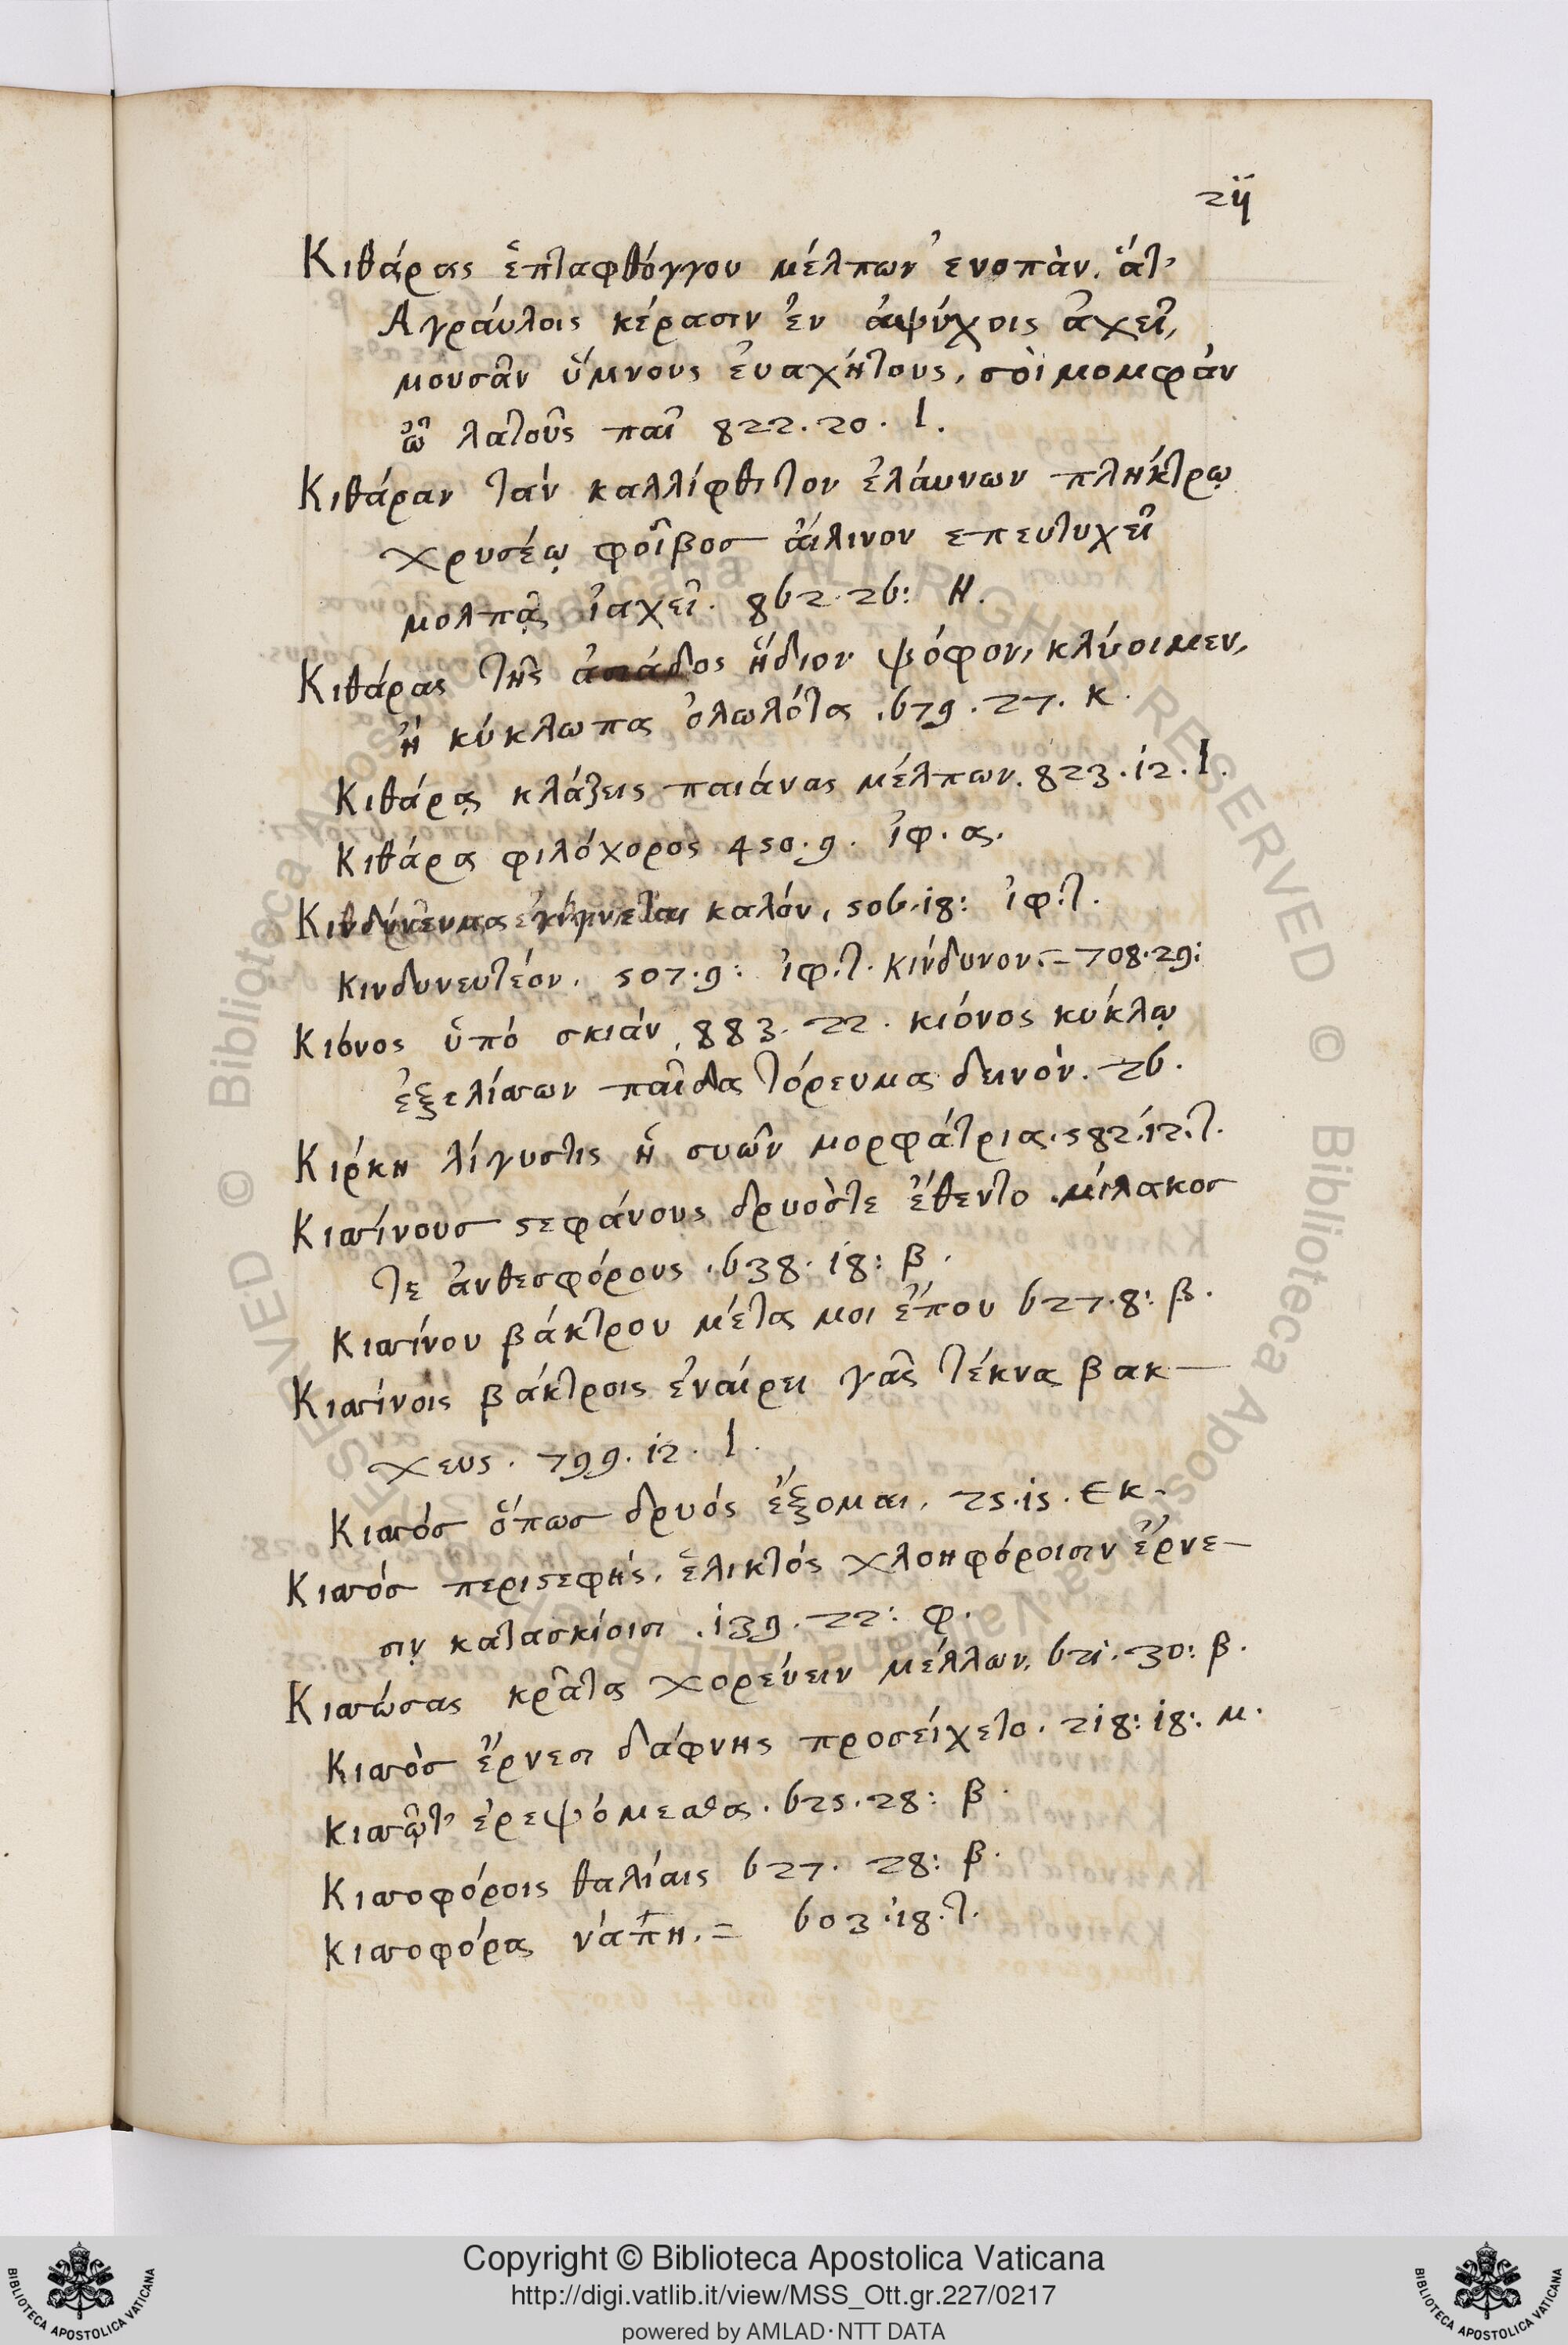 211
Κιθάρας ἑπταφθόγγου μέλπων ἐνοπὰν. ἅτ'
Αγράυλοις κέρασιν ἐν ἀψύχοις ἀχεῖ,
μουσᾶν ὕμνους ἐυαχήτους, σοὶ μομφὰν
ὦ λατοῦς παῖ 822.20. Ι.
Κιθάραν τὰν καλλίφθιτον ἐλάυνων πλήκτρῳ
χρυσέῳ φοῖβος ἄιλινον επευτυχεῖ
μολπᾷ ἰαχεῖ. 862.26: Η.
Κιθάρας τῆς ἀσιάδος ἥδιον ψόφον, κλύοιμεν,
ἢ κύκλωπας ὀλωλότα .679.27. κ.
Κιθάρᾳ κλάζεις παιάνας μέλπων. 823.12.Ι.
Κιθάρα φιλόχορος 450.9. ἰφ. α.
καλόν, 506.18: ἰφ.τ.
κινδυνευτέον. 507.9: ἰφ.τ. κίνδυνον.= 708.29:
Κιόνος ὑπό σκιάν, 883.22. κιόνος κύκλῳ
ἐξελίσσων παῖδα τόρευμα δεινὸν. 26.
Κιρκη λίγυστις ἡ συῶν μορφάτρια. 582.12.τ.
Κισσίνους στεφάνους δρυὸστε ἔθεντο .μίλακος
τε ἀνθεσφόρους .638.18: β.
Κισσίνου βάκτρου μέτα μοι ἕπου 627.8: β.
Κισσίνοις βάκτροις ἐνάιρει γᾶς τέκνα βακ-
χευς. 799.12. Ι.
Κισσός ὅπως δρυός ἕξομαι. 25.15. Εκ.
Κισσός περιστεφής. ἑλικτός χλοηφόροισιν ἔρνε-
σιν κατασκίοισι .139.22: φ.
Κισσώσας κρᾶτα χορέυειν μέλλων. 621.30: β.
Κισσὸς ἔρνεσι δάφνης προσείχετο. 218: 18: μ.
Κισσῷτ' ἐρεψόμεσθα. 625.28: β.
Κισσοφόροις θαλίαις 627. 28: β.
Κισσοφόρα νάπη. = 603.18.τ.
Copyright © Biblioteca Apostolica Vaticana
http://digi.vatlib.it/view/MSS_Ott.gr.227/0217
powered by AMLAD·NTT DATA